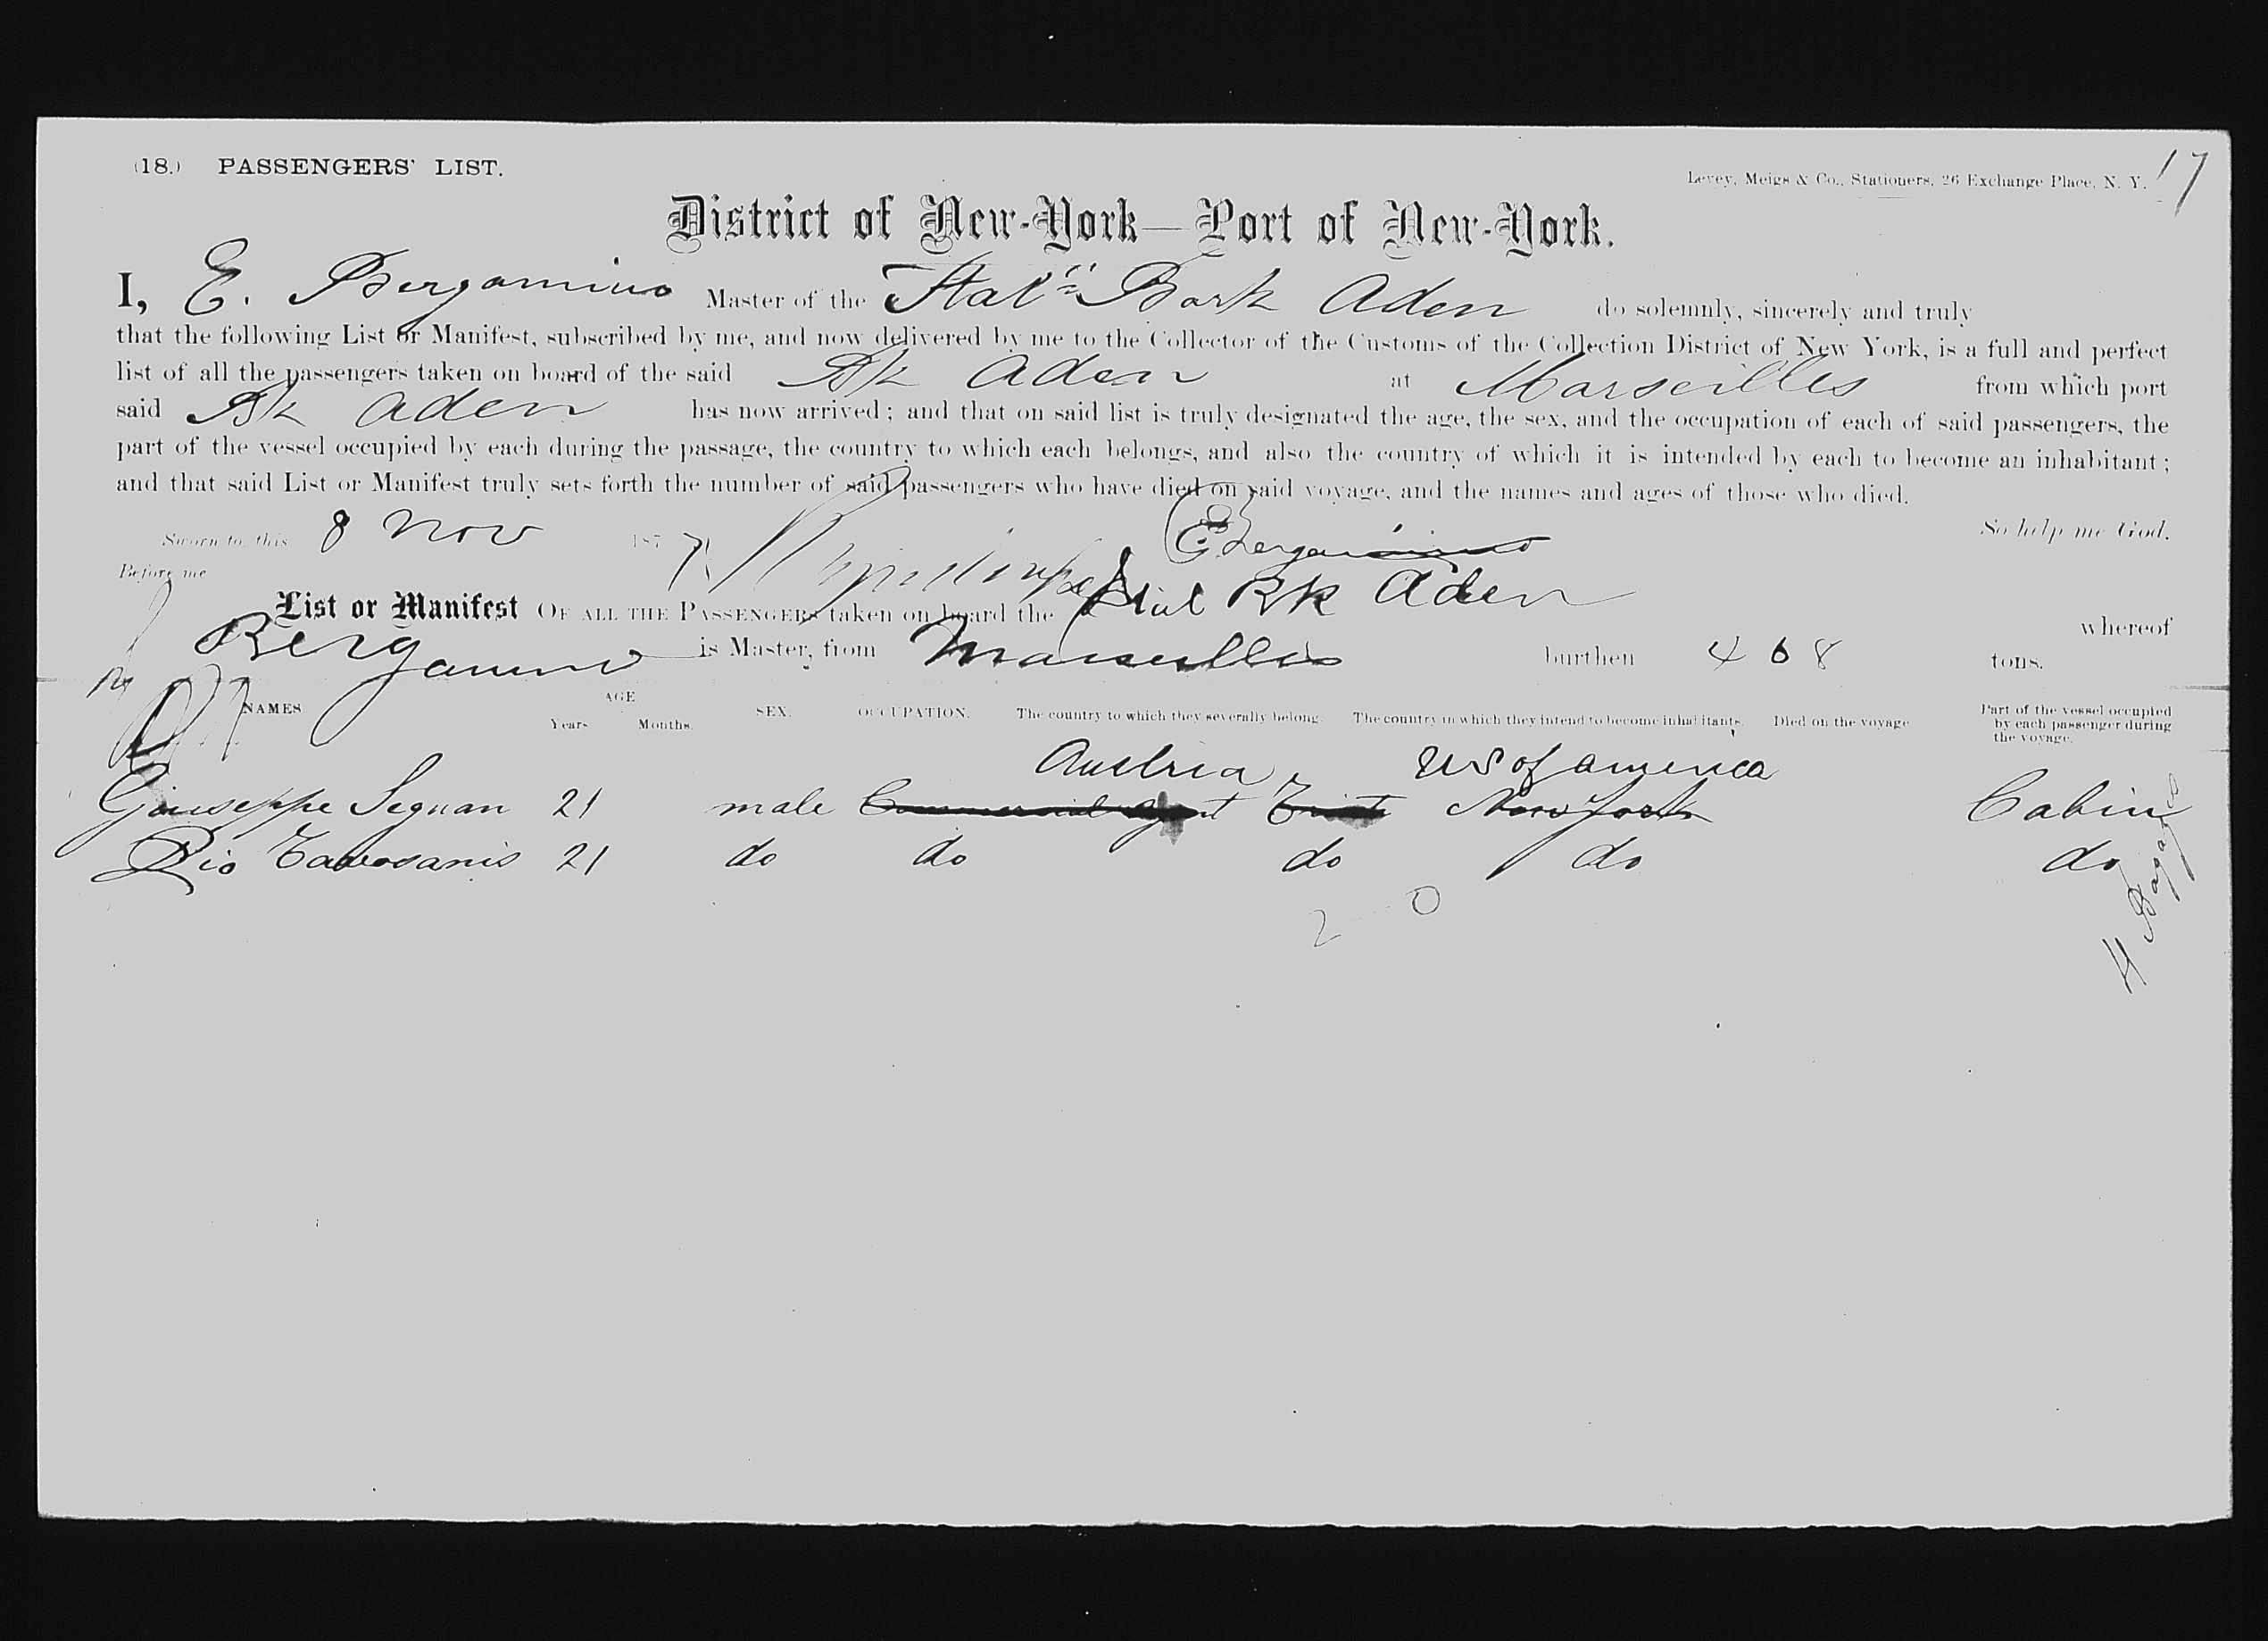 (18.) PASSENGERS' LIST.
Levey, Meigs & Co., Stationers, 26 Exchange Place, N. Y. 17
District of New-York—Port of New-York.
I, E. Bergamino Master of the Ital'n Bark Aden do solemnly, sincerely and truly
that the following List or Manifest, subscribed by me, and now delivered by me to the Collector of the Customs of the Collection District of New York, is a full and perfect
list of all the passengers taken on board of the said Bk Aden at Marseilles from which port
said Bk Aden has now arrived; and that on said list is truly designated the age, the sex, and the occupation of each of said passengers, the
part of the vessel occupied by each during the passage, the country to which each belongs, and also the country of which it is intended by each to become an inhabitant;
and that said List or Manifest truly sets forth the number of said passengers who have died on said voyage, and the names and ages of those who died.
So help me God.
Sworn to this 8 Nov 1877 E Bergamino
Before me
List or Manifest OF ALL THE PASSENGERS taken on board the Ital Bk Aden whereof
Bergamino is Master, from Marseilles burthen 468 tons.
NAMES AGE Years Months. SEX. OCCUPATION. The country to which they severally belong. The country in which they intend to become inhabitants. Died on the voyage Part of the vessel occupied by each passenger during the voyage.
Austria US of america
Giuseppe Seguan 21 male Commercial Agent Triest New York Cabin
Pio 21 do do do do do
2 0
4 Bagages